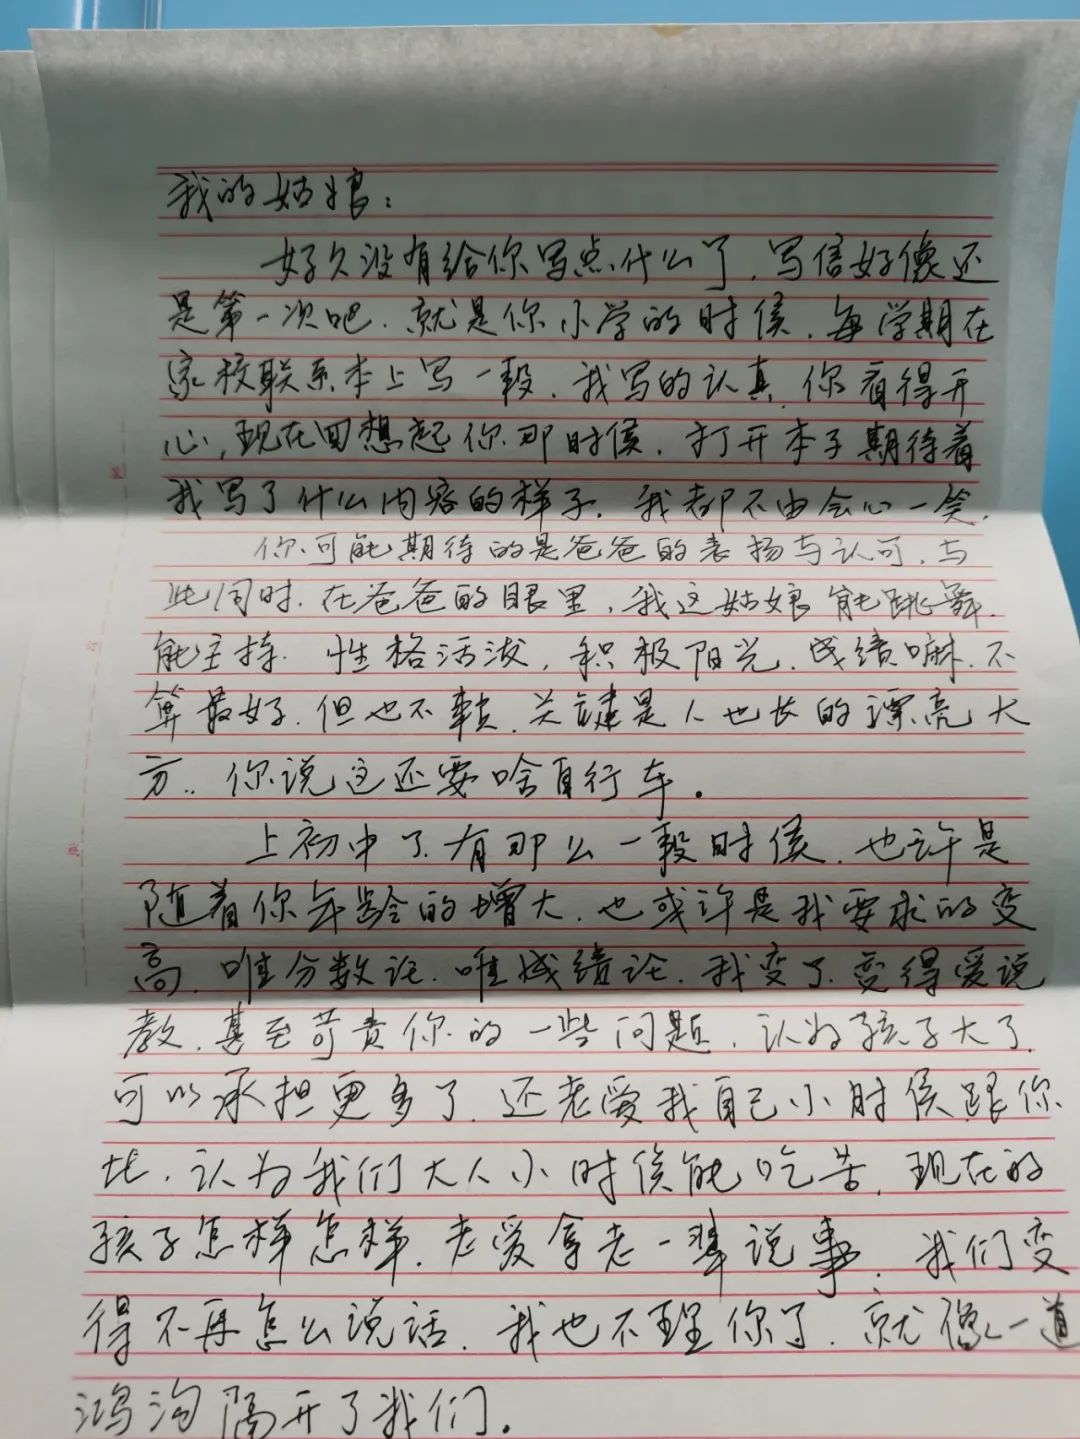 我的姑娘：
好久没有给你写点什么了，写信好像还
是第一次吧．就是你小学的时侯．每学期在
家校联系本上写一段．我写的认真．你看得开
心，现在回想起你那时侯．打开本子期待着
我写了什么内容的样子．我都不由会心一笑．
你可能期待的是爸爸的表扬与认可．与
此同时．在爸爸的眼里，我这姑娘能跳舞．
能主持．性格活泼，积极阳光．成绩嘛．不
算最好．但也不赖．关键是人也长的漂亮大
方．．你说这还要啥自行车。
上初中了．有那么一段时侯．也许是
随着你年龄的增大．也或许是我要求的变
高．唯分数论．唯成绩论．我变了．变得爱说
教．甚至苛责你的一些问题．认为孩子大了．
可以承担更多了．还老爱我自己小时侯跟你
比．认为我们大人小时侯能吃苦．现在的
孩子怎样怎样．老爱拿老一辈说事．我们变
得不再怎么说话．我也不理你了．就像一道
鸿沟隔开了我们。
装
订
线